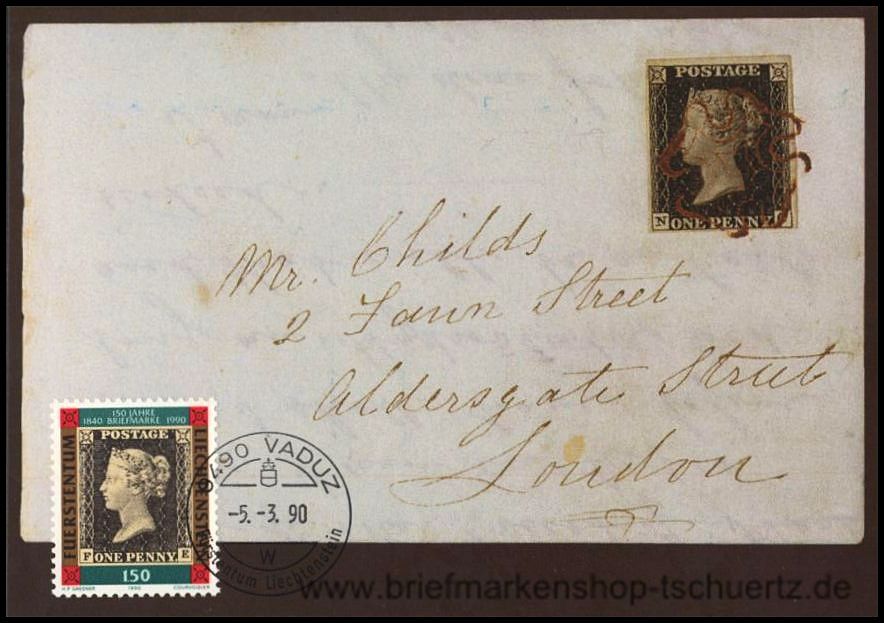 POSTAGE
N
ONE PENNY
Mr. Childs
2 Fann Street
Aldersgate Street
London
150 JAHRE
1840 BRIEFMARKE 1990
POSTAGE
FUERSTENTUM
LIECHTENSTEIN
F ONE PENNY E
150
H.P. GASSNER 1990 COURVOISIER
9490 VADUZ
-5.-3.90
W
Fürstentum Liechtenstein
www.briefmarkenshop-tschuertz.de